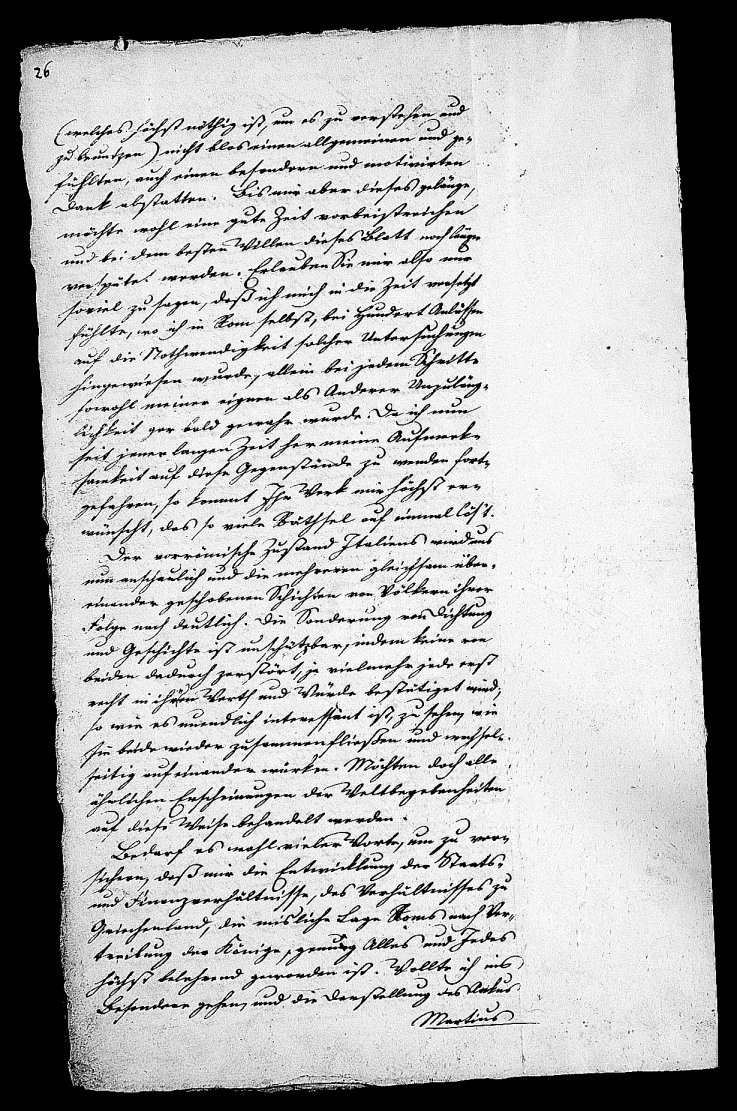 26
(welches höchst nöthig ist, um es zu verstehen und
zu benutzen) nicht blos einen allgemeinen und ge-
fühlten, auch einen besondern und motivirten
Dank abstatten. Bis mir aber dieses gelänge,
möchte wohl eine gute Zeit vorbeistreichen
und bei dem besten Willen dieses Blatt noch länger
verspätet werden. Erlauben Sie mir also nur
soviel zu sagen, daß ich mich in die Zeit versetzt
fühlte, wo ich in Rom selbst, bei hundert Anlässen
auf die Nothwendigkeit solcher Untersuchungen
hingewiesen wurde, allein bei jedem Schritte
sowohl meiner eignen als Anderer Unzuläng-
lichkeit gar bald gewahr wurde. Da ich nun
seit jener langen Zeit her meine Aufmerk-
samkeit auf diese Gegenstände zu wenden fort-
gefahren, so kommt Ihr Werk mir höchst er-
wünscht, das so viele Räthsel auf einmal lös't.
Der vorrömische Zustand Italiens wird uns
nun anschaulich und die mehreren gleichsam über-
einander geschobenen Schichten von Völkern ihrer
Folge nach deutlich. Die Sonderung von Dichtung
und Geschichte ist unschätzbar, indem keine von
beiden dadurch zerstört, ja vielmehr jede erst
recht in ihrem Werth und Würde bestätiget wird,
so wie es unendlich interessant ist, zu sehen, wie
sie beide wieder zusammenfließen und wechsel-
seitig auf einander würken. Möchten doch alle
ähnlichen Erscheinungen der Weltbegebenheiten
auf diese Weise behandelt werden.
Bedarf es wohl vieler Worte, um zu ver-
sichern, daß mir die Entwicklung der Staats-
und Finanzverhältnisse, des Verhältnisses zu
Griechenland, die misliche Lage Roms nach Ver-
treibung der Könige, genug Alles und Jedes
höchst belehrend geworden ist. Wollte ich ins
Besondere gehen, und die Darstellung des Ankus
Martius